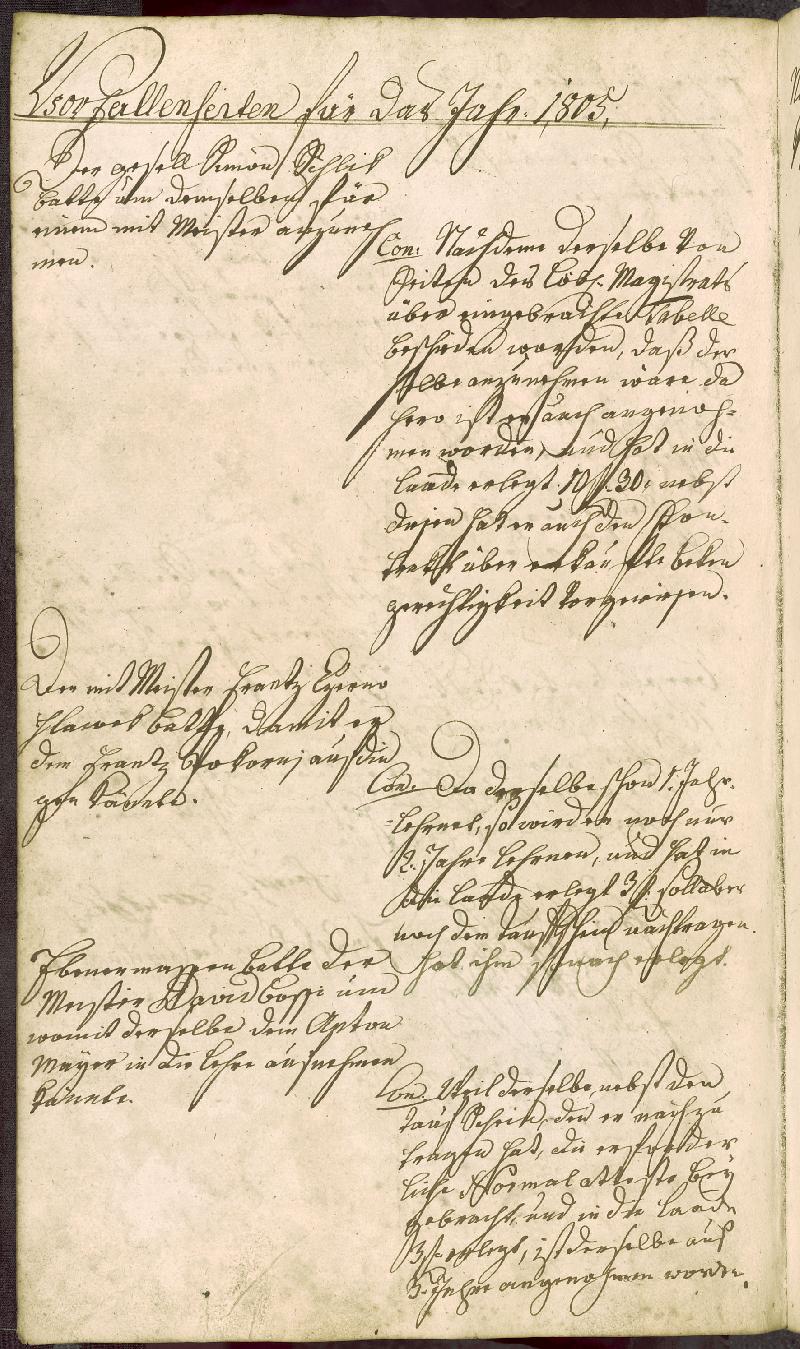 Vorfallenheiten für das Jahr: 1805.
Der gesell Simon Schlik
batte um demselben für
einem mit Meister anzuneh
men.
Con: Nachdeme derselbe von
Seiten des Löbl. Magistrats
über eingebrachte Tabelle
beschieden worden, daß der
selbe anzunehmen wäre da
hero ist er auch angenoh=
men worden, und hat in die
Laade erlegt 10 f. 30. nebst
diesen hat er auch den Kon-
trakt über erkaufte Beken
gerechtigkeit vorgewiesen.
Der mit Meister Frantz Czerno
hlawek batte, damit er
dem Frantz Pokornj aufdin
gen könnte.
Con: Da derselbe schon 1. Jahr.
lehrnet, so wird er noch nur
2. Jahre lehrnen, und hat in
die Laade erlegt 3 f. soll aber
noch den taufschein nachtragen.
hat ihm nach erlegt.
Ebenermassen batte der
Meister David Bossi um
womit derselbe dem Anton
Mayer in die Lehre aufnehmen
könnte.
Con: Weil derselbe nebst den
Tauf Schein, den er nachzu
tragen hat, die erforder
liche Normal Atteste bey
gebracht, und in die Laade
3 f. erlegt, ist derselbe auf
3. Jahre angenohmen worden.